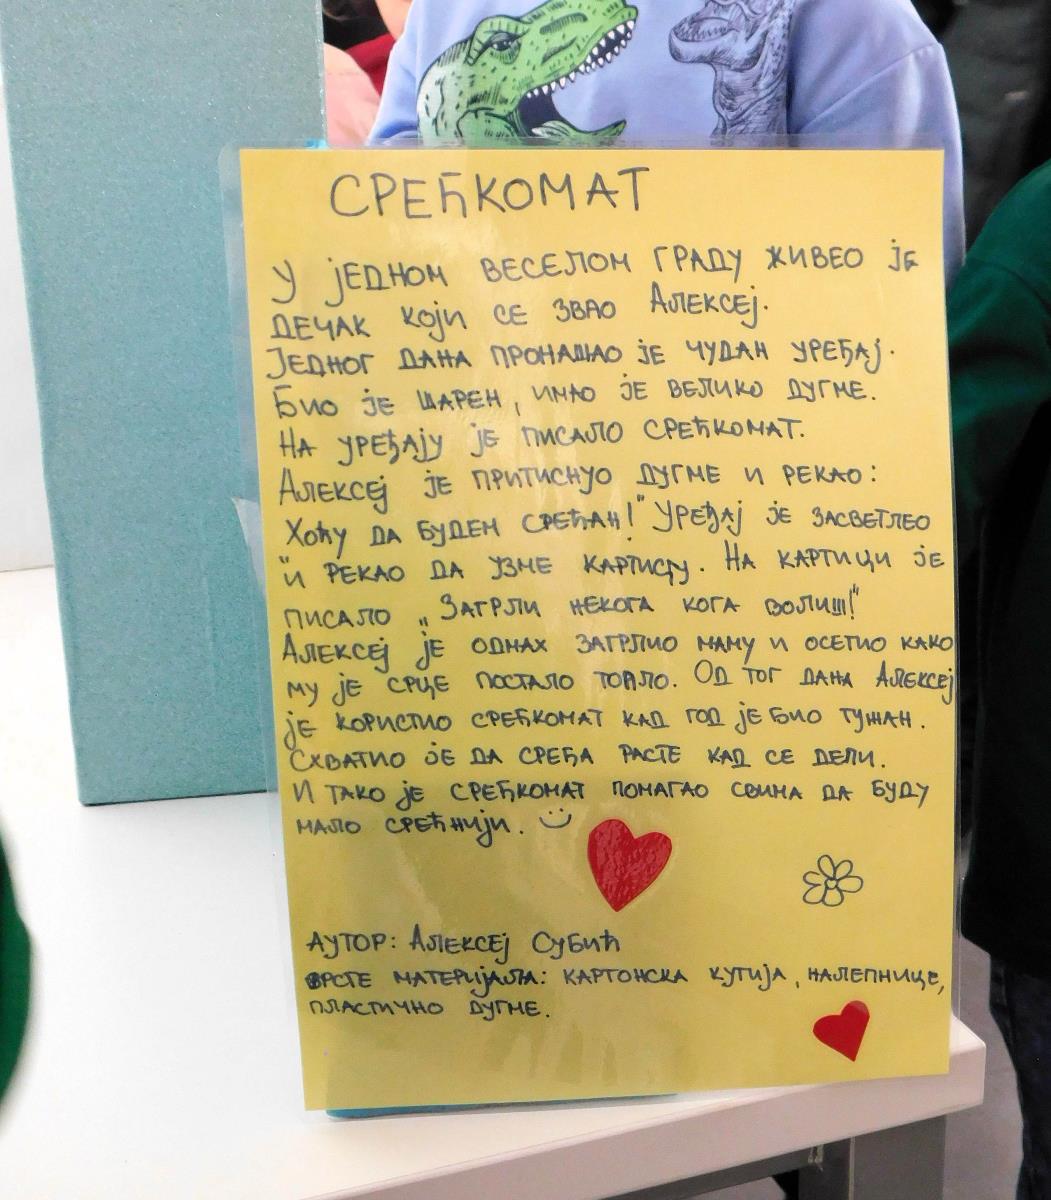 СРЕЋКОМАТ
У ЈЕДНОМ ВЕСЕЛОМ ГРАДУ ЖИВЕО ЈЕ
ДЕЧАК КОЈИ СЕ ЗВАО АЛЕКСЕЈ.
ЈЕДНОГ ДАНА ПРОНАШАО ЈЕ ЧУДАН УРЕЂАЈ.
БИО ЈЕ ШАРЕН, ИМАО ЈЕ ВЕЛИКО ДУГМЕ.
НА УРЕЂАЈУ ЈЕ ПИСАЛО СРЕЋКОМАТ.
АЛЕКСЕЈ ЈЕ ПРИТИСНУО ДУГМЕ И РЕКАО:
ХОЋУ ДА БУДЕН СРЕЋАН!" УРЕЂАЈ ЈЕ ЗАСВЕТЛЕО
"И РЕКАО ДА УЗМЕ КАРТИЦУ. НА КАРТИЦИ ЈЕ
ПИСАЛО „ЗАГРЛИ НЕКОГА КОГА ВОЛИШ!"
АЛЕКСЕЈ ЈЕ ОДМАХ ЗАГРЛИО МАМУ И ОСЕТИО КАКО
МУ ЈЕ СРЦЕ ПОСТАЛО ТОПЛО. ОД ТОГ ДАНА АЛЕКСЕЈ
ЈЕ КОРИСТИО СРЕЋКОМАТ КАД ГОД ЈЕ БИО ТУЖАН.
СХВАТИО ЈЕ ДА СРЕЋА РАСТЕ КАД СЕ ДЕЛИ.
И ТАКО ЈЕ СРЕЋКОМАТ ПОМАГАО СВИМА ДА БУДУ
МАЛО СРЕЋНИЈИ.
АУТОР: АЛЕКСЕЈ СУБИЋ
ВРСТЕ МАТЕРИЈАЛА: КАРТОНСКА КУТИЈА, НАЛЕПНИЦЕ,
ПЛАСТИЧНО ДУГМЕ.